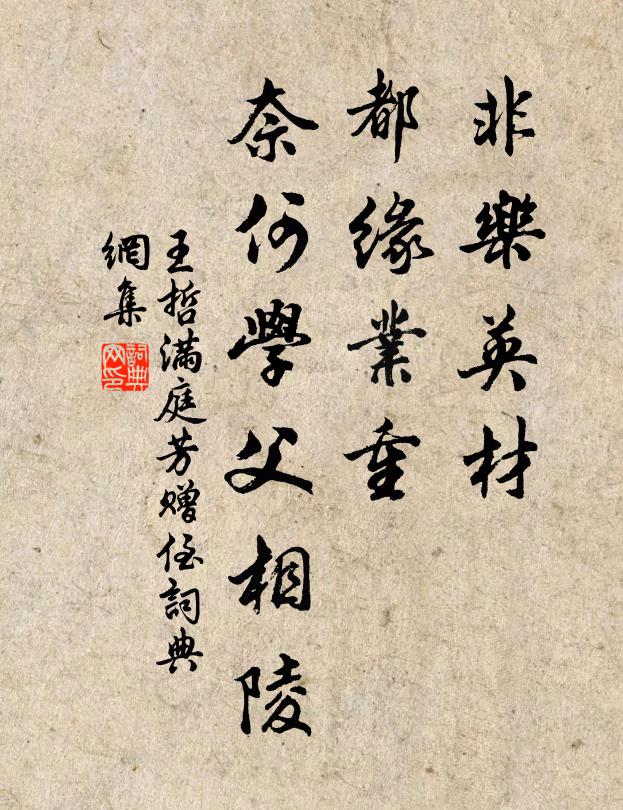 非樂英材
都緣業重
奈何學父相陵
王哲滿庭芳贈侄詞典
網集
詞典
网印